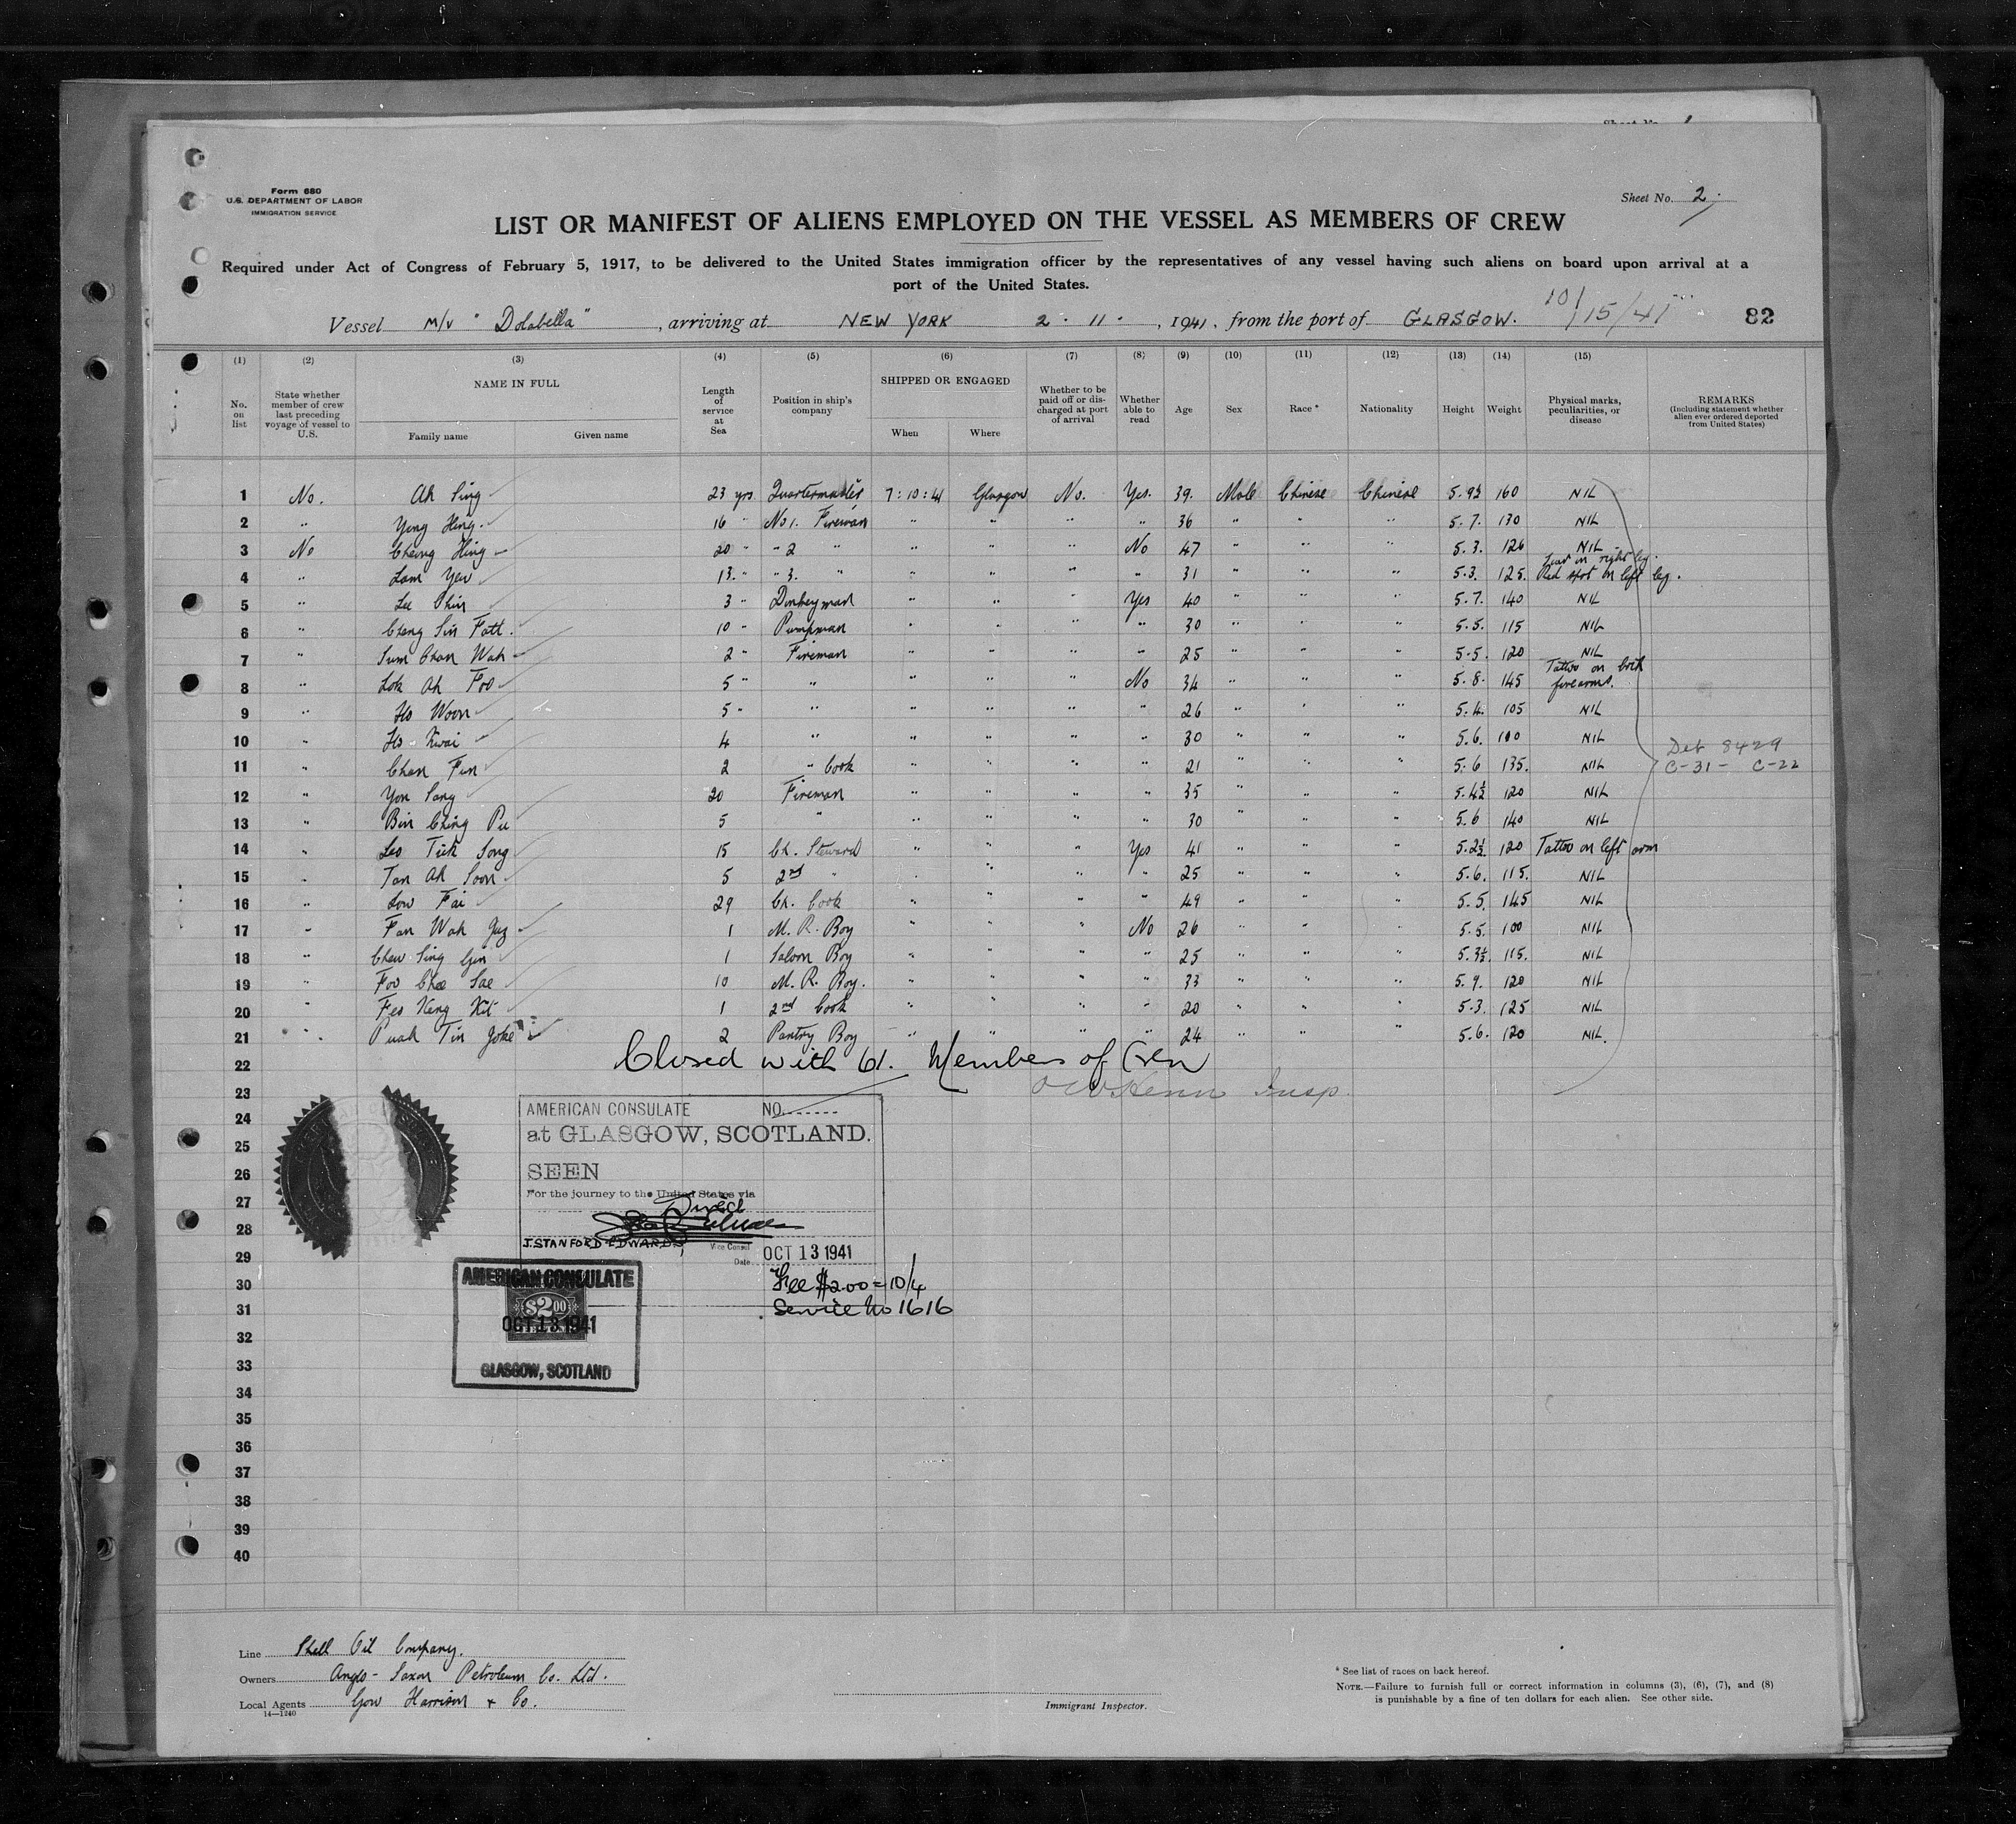 Sheet No. 1
Form 680
U.S. DEPARTMENT OF LABOR
IMMIGRATION SERVICE
Sheet No. 2
LIST OR MANIFEST OF ALIENS EMPLOYED ON THE VESSEL AS MEMBERS OF CREW
Required under Act of Congress of February 5, 1917, to be delivered to the United States immigration officer by the representatives of any vessel having such aliens on board upon arrival at a
port of the United States.
10/15/41
Vessel M/V "Dolabella", arriving at NEW YORK 2 . 11 . , 1941, from the port of GLASGOW. 82
(1) (2) (3) (4) (5) (6) (7) (8) (9) (10) (11) (12) (13) (14) (15)
No. on list
State whether member of crew last preceding voyage of vessel to U.S.
NAME IN FULL
Family name Given name
Length of service at Sea
Position in ship's company
SHIPPED OR ENGAGED
When Where
Whether to be paid off or discharged at port of arrival
Whether able to read
Age Sex Race * Nationality Height Weight
Physical marks, peculiarities, or disease
REMARKS
(Including statement whether alien ever ordered deported from United States)
1 No. Ah Sing 23 yrs. Quartermaster 7:10:41 Glasgow No. Yes. 39. Male Chinese Chinese 5.9½ 160 NIL
2 " Yong Hing. 16 " No 1. Fireman " " " " 36 " " " 5.7. 130 NIL
3 No Cheong Hing 20 " " 2 " " " " No 47 " " " 5.3. 126 NIL
4 " Lam Yew 13. " " 3. " " " " " 31 " " " 5.3. 125. Scar on right leg. Red spot on left leg.
5 " Lee Chin 3 " Donkeyman " " " Yes 40 " " " 5.7. 140 NIL
6 " Cheng Sin Fatt. 10 " Pumpman " " " " 30 " " " 5.5. 115 NIL
7 " Sum Chan Wah 2 " Fireman " " " " 25 " " " 5.5. 120 NIL
8 " Lok Ah Foo 5 " " " " " No 34 " " " 5.8. 145 Tattoo on both forearms.
9 " Ho Woon 5 " " " " " " 26 " " " 5.4. 105 NIL
10 " Ho Kwai 4 " " " " " 30 " " " 5.6. 100 NIL
11 " Chan Fun 2 " Cook " " " " 21 " " " 5.6 135. NIL
Det 8429
C-31- C-22
12 " Yon Sang 20 Fireman " " " " 35 " " " 5.4½ 120 NIL
13 " Bin Ching Pu 5 " " " " " 30 " " " 5.6 140 NIL
14 " Leo Tick Song 15 Ch. Steward " " " Yes 41 " " " 5.2½. 120 Tattoo on left arm
15 " Tan Ah Soon 5 2nd " " " " " 25 " " " 5.6. 115. NIL
16 " Low Fai 29 Ch. Cook " " " " 49 " " " 5.5. 145 NIL
17 " Fan Wah 1 M. R. Boy " " " No 26 " " " 5.5. 100 NIL
18 " Chew Sing Gin 1 Saloon Boy " " " " 25 " " " 5.3½. 115. NIL
19 " Foo Chee Sae 10 M. R. Boy. " " " " 33 " " " 5.9. 120 NIL
20 " Feo Keng Kit 1 2nd Cook " " " " 20 " " " 5.3. 125 NIL
21 " Puah Tin Joke 2 Pantry Boy " " " " 24 " " " 5.6. 120 NIL.
22 Closed with 61. Members of Crew
23 Insp.
24
25
26
27
28
29
30
31
32
33
34
35
36
37
38
39
40
AMERICAN CONSULATE NO.
at GLASGOW, SCOTLAND.
SEEN
For the journey to the United States via
Direct
J. STANFORD EDWARDS, Vice Consul
Date OCT 13 1941
Fee $2.00 = 10/4
Service No 1616
AMERICAN CONSULATE
$2.00
OCT 13 1941
GLASGOW, SCOTLAND
Line Shell Oil Company.
Owners Anglo-Saxon Petroleum Co. Ltd.
Local Agents Gow Harrison & Co.
14—1240
Immigrant Inspector.
* See list of races on back hereof.
NOTE.—Failure to furnish full or correct information in columns (3), (6), (7), and (8)
is punishable by a fine of ten dollars for each alien. See other side.